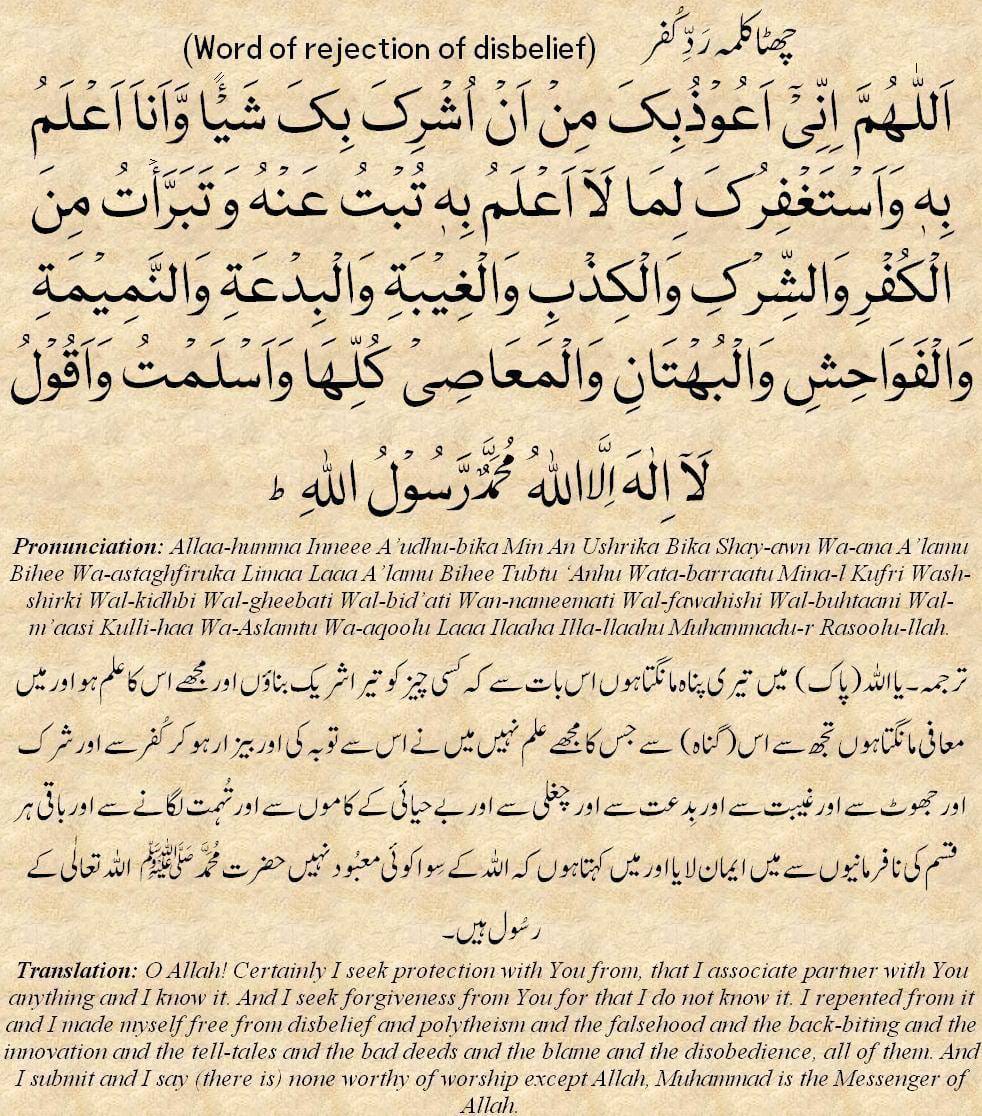 (Word of rejection of disbelief) چھٹا کلمہ رَدِّ کُفر
اَللّٰهُمَّ اِنِّیْۤ اَعُوْذُبِکَ مِنْ اَنْ اُشْرِکَ بِکَ شَیْئًا وَّاَنَا اَعْلَمُ
بِهٖ وَاَسْتَغْفِرُکَ لِمَا لَاۤ اَعْلَمُ بِهٖ تُبْتُ عَنْهُ وَ تَبَرَّأْتُ مِنَ
الْکُفْرِ وَالشِّرْکِ وَالْکِذْبِ وَالْغِیْبَةِ وَالْبِدْعَةِ وَالنَّمِیْمَةِ
وَالْفَوَاحِشِ وَالْبُهْتَانِ وَالْمَعَاصِیْ کُلِّهَا وَاَسْلَمْتُ وَاَقُوْلُ
لَاۤ اِلٰهَ اِلَّا اللهُ مُحَمَّدٌ رَّسُوْلُ اللهِ ؕ
Pronunciation: Allaa-humma Inneee A’udhu-bika Min An Ushrika Bika Shay-awn Wa-ana A’lamu
Bihee Wa-astaghfiruka Limaa Laaa A’lamu Bihee Tubtu ‘Anhu Wata-barraatu Mina-l Kufri Wash-
shirki Wal-kidhbi Wal-gheebati Wal-bid’ati Wan-nameemati Wal-fawahishi Wal-buhtaani Wal-
m’aasi Kulli-haa Wa-Aslamtu Wa-aqoolu Laaa Ilaaha Illa-llaahu Muhammadu-r Rasoolu-llah.
ترجمہ۔ یا اللہ (پاک) میں تیری پناہ مانگتا ہوں اس بات سے کہ کسی چیز کو تیرا شریک بناؤں اور مجھے اس کا علم ہو اور میں
معافی مانگتا ہوں تجھ سے اس (گناہ) سے جس کا مجھے علم نہیں میں نے اس سے توبہ کی اور بیزار ہو کر کُفر سے اور شرک
اور جھوٹ سے اور غیبت سے اور بدعت سے اور چغلی سے اور بے حیائی کے کاموں سے اور تُہمت لگانے سے اور باقی ہر
قسم کی نافرمانیوں سے میں ایمان لایا اور میں کہتا ہوں کہ اللہ کے سِوا کوئی معبُود نہیں حضرت مُحمَّد ﷺ اللہ تعالٰی کے
رسُول ہیں۔
Translation: O Allah! Certainly I seek protection with You from, that I associate partner with You
anything and I know it. And I seek forgiveness from You for that I do not know it. I repented from it
and I made myself free from disbelief and polytheism and the falsehood and the back-biting and the
innovation and the tell-tales and the bad deeds and the blame and the disobedience, all of them. And
I submit and I say (there is) none worthy of worship except Allah, Muhammad is the Messenger of
Allah.